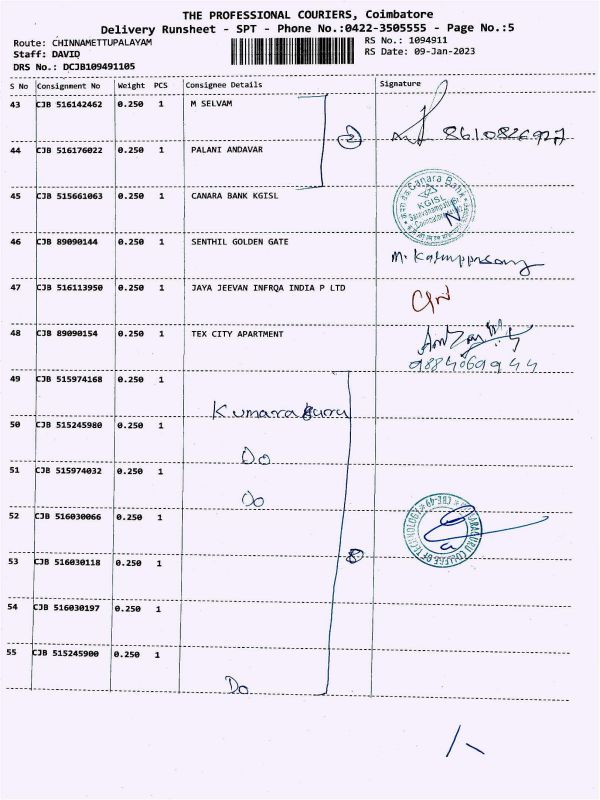 THE PROFESSIONAL COURIERS, Coimbatore
Delivery Runsheet - SPT - Phone No.:0422-3505555 - Page No.:5
Route: CHINNAMETTUPALAYAM
RS No.: 1094911
Staff: DAVID
RS Date: 09-Jan-2023
DRS No.: DCJB109491105
S No Consignment No Weight PCS Consignee Details Signature
43 CJB 516142462 0.250 1 M SELVAM
2 8610826927
44 CJB 516176022 0.250 1 PALANI ANDAVAR
45 CJB 515661063 0.250 1 CANARA BANK KGISL
Canara Bank
KGISL
46 CJB 89090144 0.250 1 SENTHIL GOLDEN GATE
47 CJB 516113950 0.250 1 JAYA JEEVAN INFRQA INDIA P LTD
48 CJB 89090154 0.250 1 TEX CITY APARTMENT
9884069944
49 CJB 515974168 0.250 1
Kumaraguru
50 CJB 515245980 0.250 1
Do
51 CJB 515974032 0.250 1
Do
52 CJB 516030066 0.250 1
COLLEGE OF TECHNOLOGY
CBE-49
53 CJB 516030118 0.250 1
54 CJB 516030197 0.250 1
55 CJB 515245900 0.250 1
Do